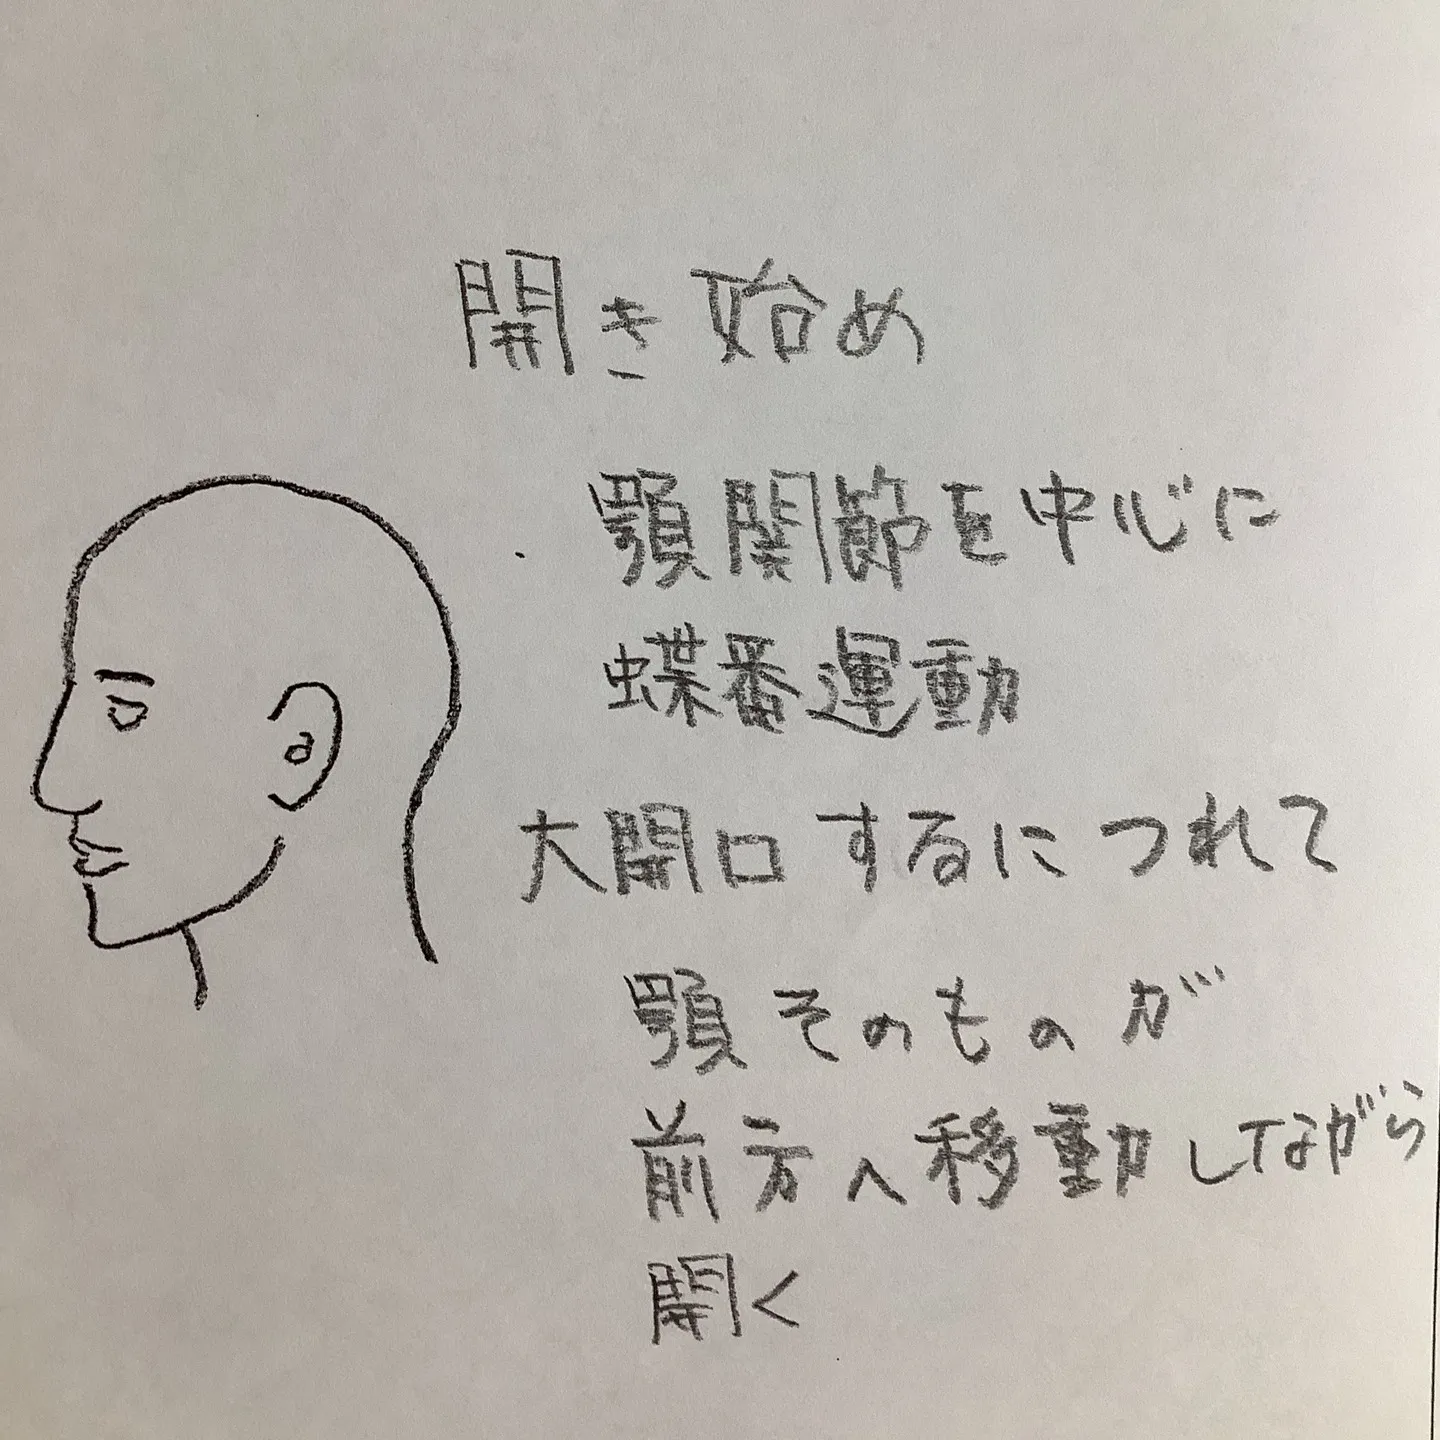 開き始め
顎関節を中心に
蝶番運動
大開口するにつれて
顎そのものが
前方へ移動しながら
開く